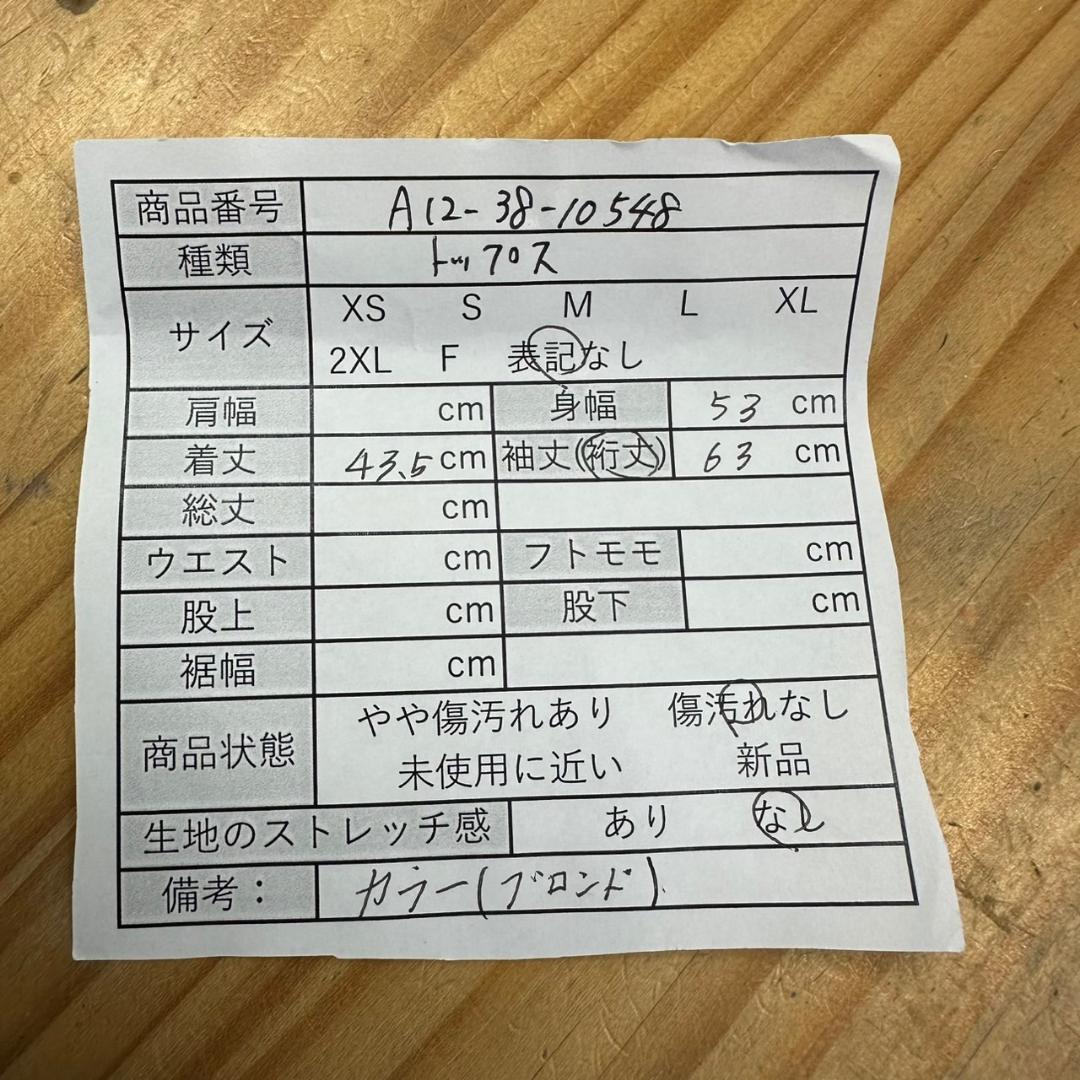 商品番号 A12-38-10548
種類 トップス
サイズ XS S M L XL
2XL F 表記なし
肩幅 cm 身幅 53 cm
着丈 43.5 cm 袖丈(裄丈) 63 cm
総丈 cm
ウエスト cm フトモモ cm
股上 cm 股下 cm
裾幅 cm
商品状態 やや傷汚れあり 傷汚れなし
未使用に近い 新品
生地のストレッチ感 あり なし
備考： カラー(ブロンド)